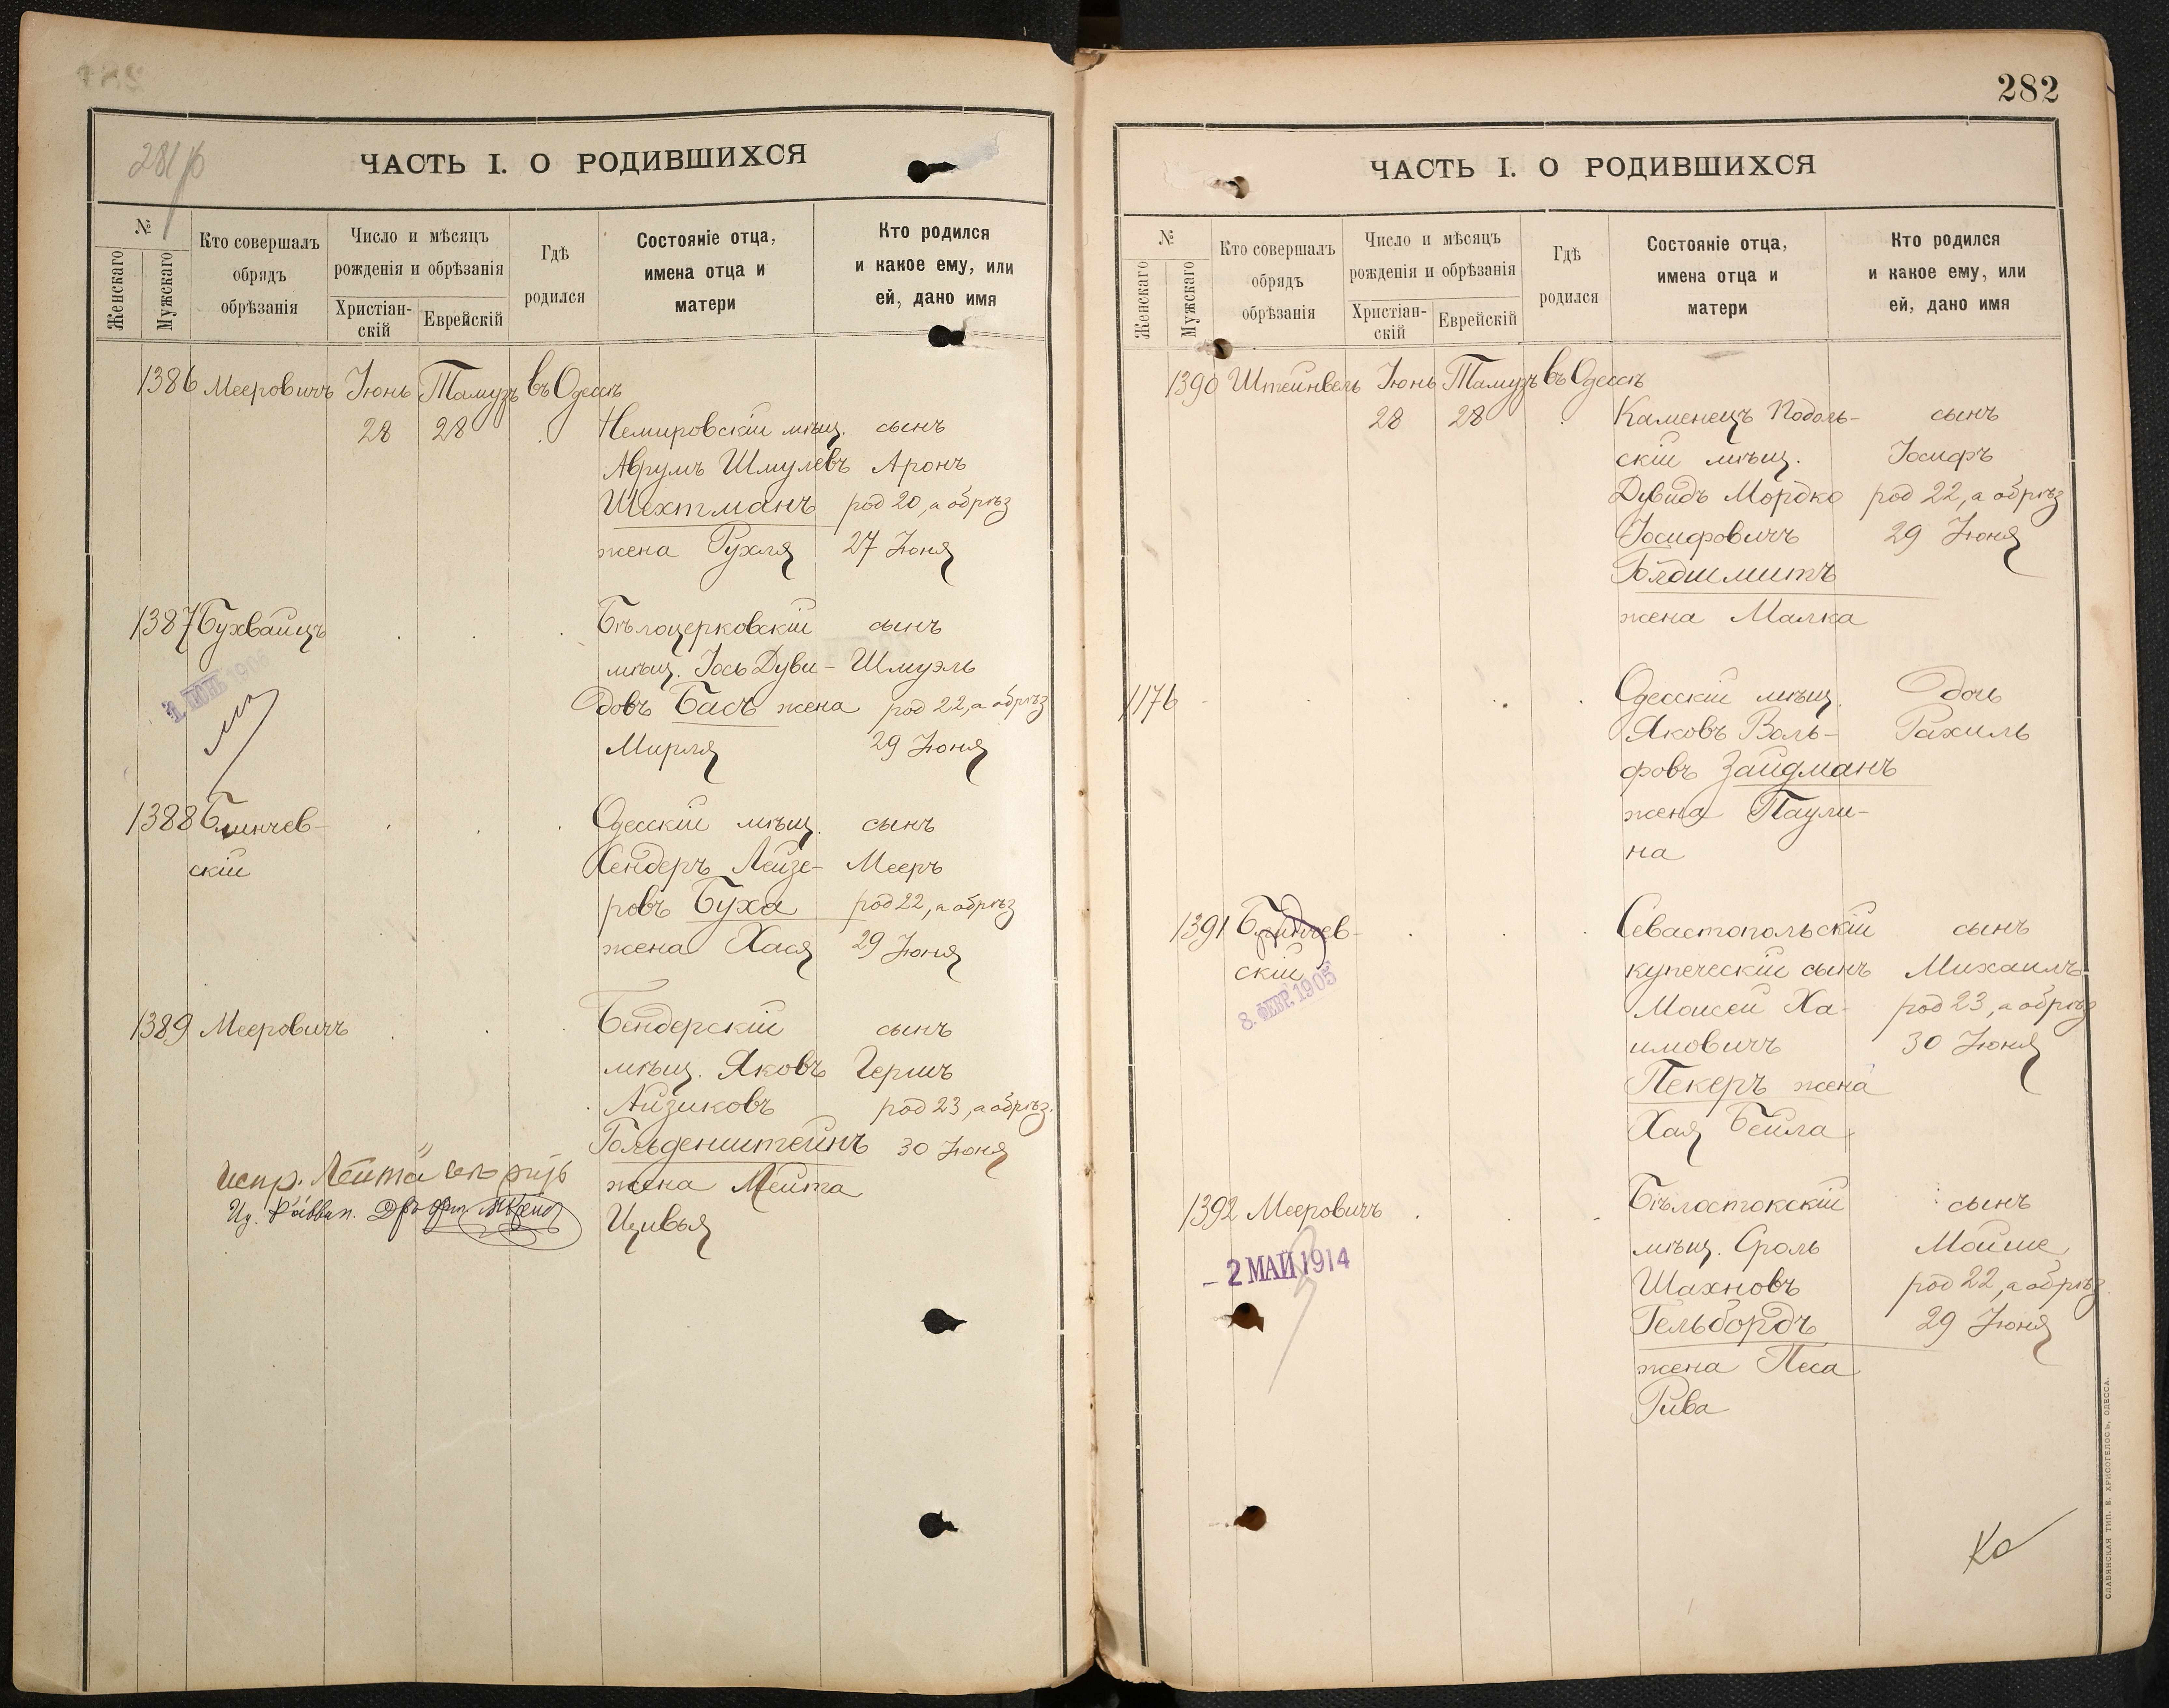 281/б
ЧАСТЬ I. О РОДИВШИХСЯ
№
Женскаго
Мужскаго
Кто совершалъ
обрядъ
обрѣзанія
Число и мѣсяцъ
рожденія и обрѣзанія
Христіан-
скій
Еврейскій
Гдѣ
родился
Состояніе отца,
имена отца и
матери
Кто родился
и какое ему, или
ей, дано имя
1386 Мееровичъ Іюнь Тамузъ въ Одессѣ
28 28 Немировскій мѣщ. сынъ
Аврумъ Шмулевъ Аронъ
Шехтманъ род 20, а обрѣз
жена Рухля 27 Іюня
1387 Бухвайцъ Бѣлоцерковскій сынъ
мѣщ. Іось Дуви- Шмуэль
довъ Басъ жена род 22, а обрѣз
Мирля 29 Іюня
1388 Блинчев- Одесскій мѣщ. сынъ
скій Хендеръ Лейзе- Мееръ
ровъ Буха род 22, а обрѣз
жена Хася 29 Іюня
1389 Мееровичъ Бендерскій сынъ
мѣщ. Яковъ Гершъ
Айзиковъ род 23, а обрѣз.
Гольденштейнъ 30 Іюня
жена Лейта
Цивья
испр. Лейта
282
ЧАСТЬ I. О РОДИВШИХСЯ
№
Женскаго
Мужскаго
Кто совершалъ
обрядъ
обрѣзанія
Число и мѣсяцъ
рожденія и обрѣзанія
Христіан-
скій
Еврейскій
Гдѣ
родился
Состояніе отца,
имена отца и
матери
Кто родился
и какое ему, или
ей, дано имя
1390 Штейнвель Іюнь Тамузъ въ Одессѣ
28 28 Каменецъ Подоль- сынъ
скій мѣщ. Іосифъ
Дувидъ Мордко род 22, а обрѣз
Іосифовичъ 29 Іюня
Голдшмитъ
жена Малка
1176 Одесскій мѣщ. дочь
Яковъ Воль- Рахиль
фовъ Зайдманъ
жена Паули-
на
1391 Блинчев- Севастопольскій сынъ
скій купеческій сынъ Михаилъ
8. ФЕВР. 1905
Моисей Ха- род 23, а обрѣз
имовичъ 30 Іюня
Пекеръ жена
Хая Бейла
1392 Мееровичъ Бѣлостокскій сынъ
мѣщ. Сроль Мойше
- 2 МАЙ 1914
Шахновъ род 22, а обрѣз
Гельбордъ 29 Іюня
жена Песа
Рива
СЛАВЯНСКАЯ ТИП. Е. ХРИСОГЕЛОСЪ, ОДЕССА.